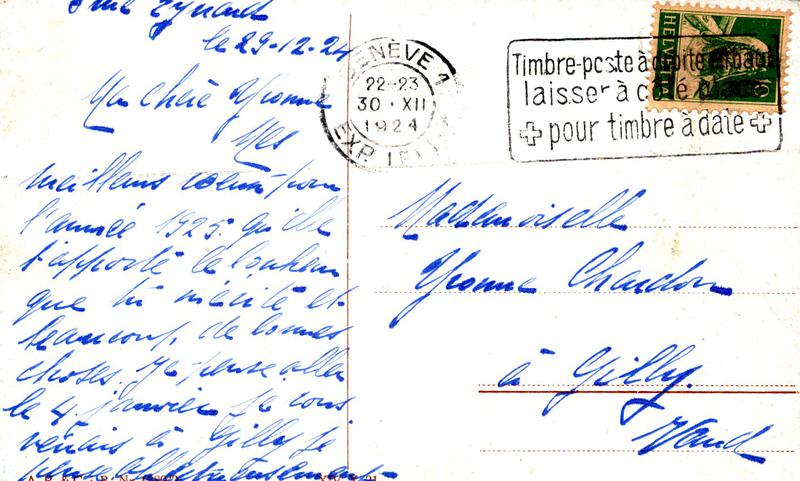 le 29-12-24
Ma chère Yvonne
Mes
meilleurs voeux pour
l'année 1925 qu'elle
t'apporte le bonheur
que tu mérite et
beaucoup de bonnes
choses. Je pense aller
le 4 janvier je vous
verrais à Gilly je
pense
GENÈVE 1
22-23
30·XII
1924
EXP. LETT
HELVETIA
Timbre-poste à droite en haut
laisser à côté place
pour timbre à date
Mademoiselle
Yvonne Chardon
à Gilly.
Vaud